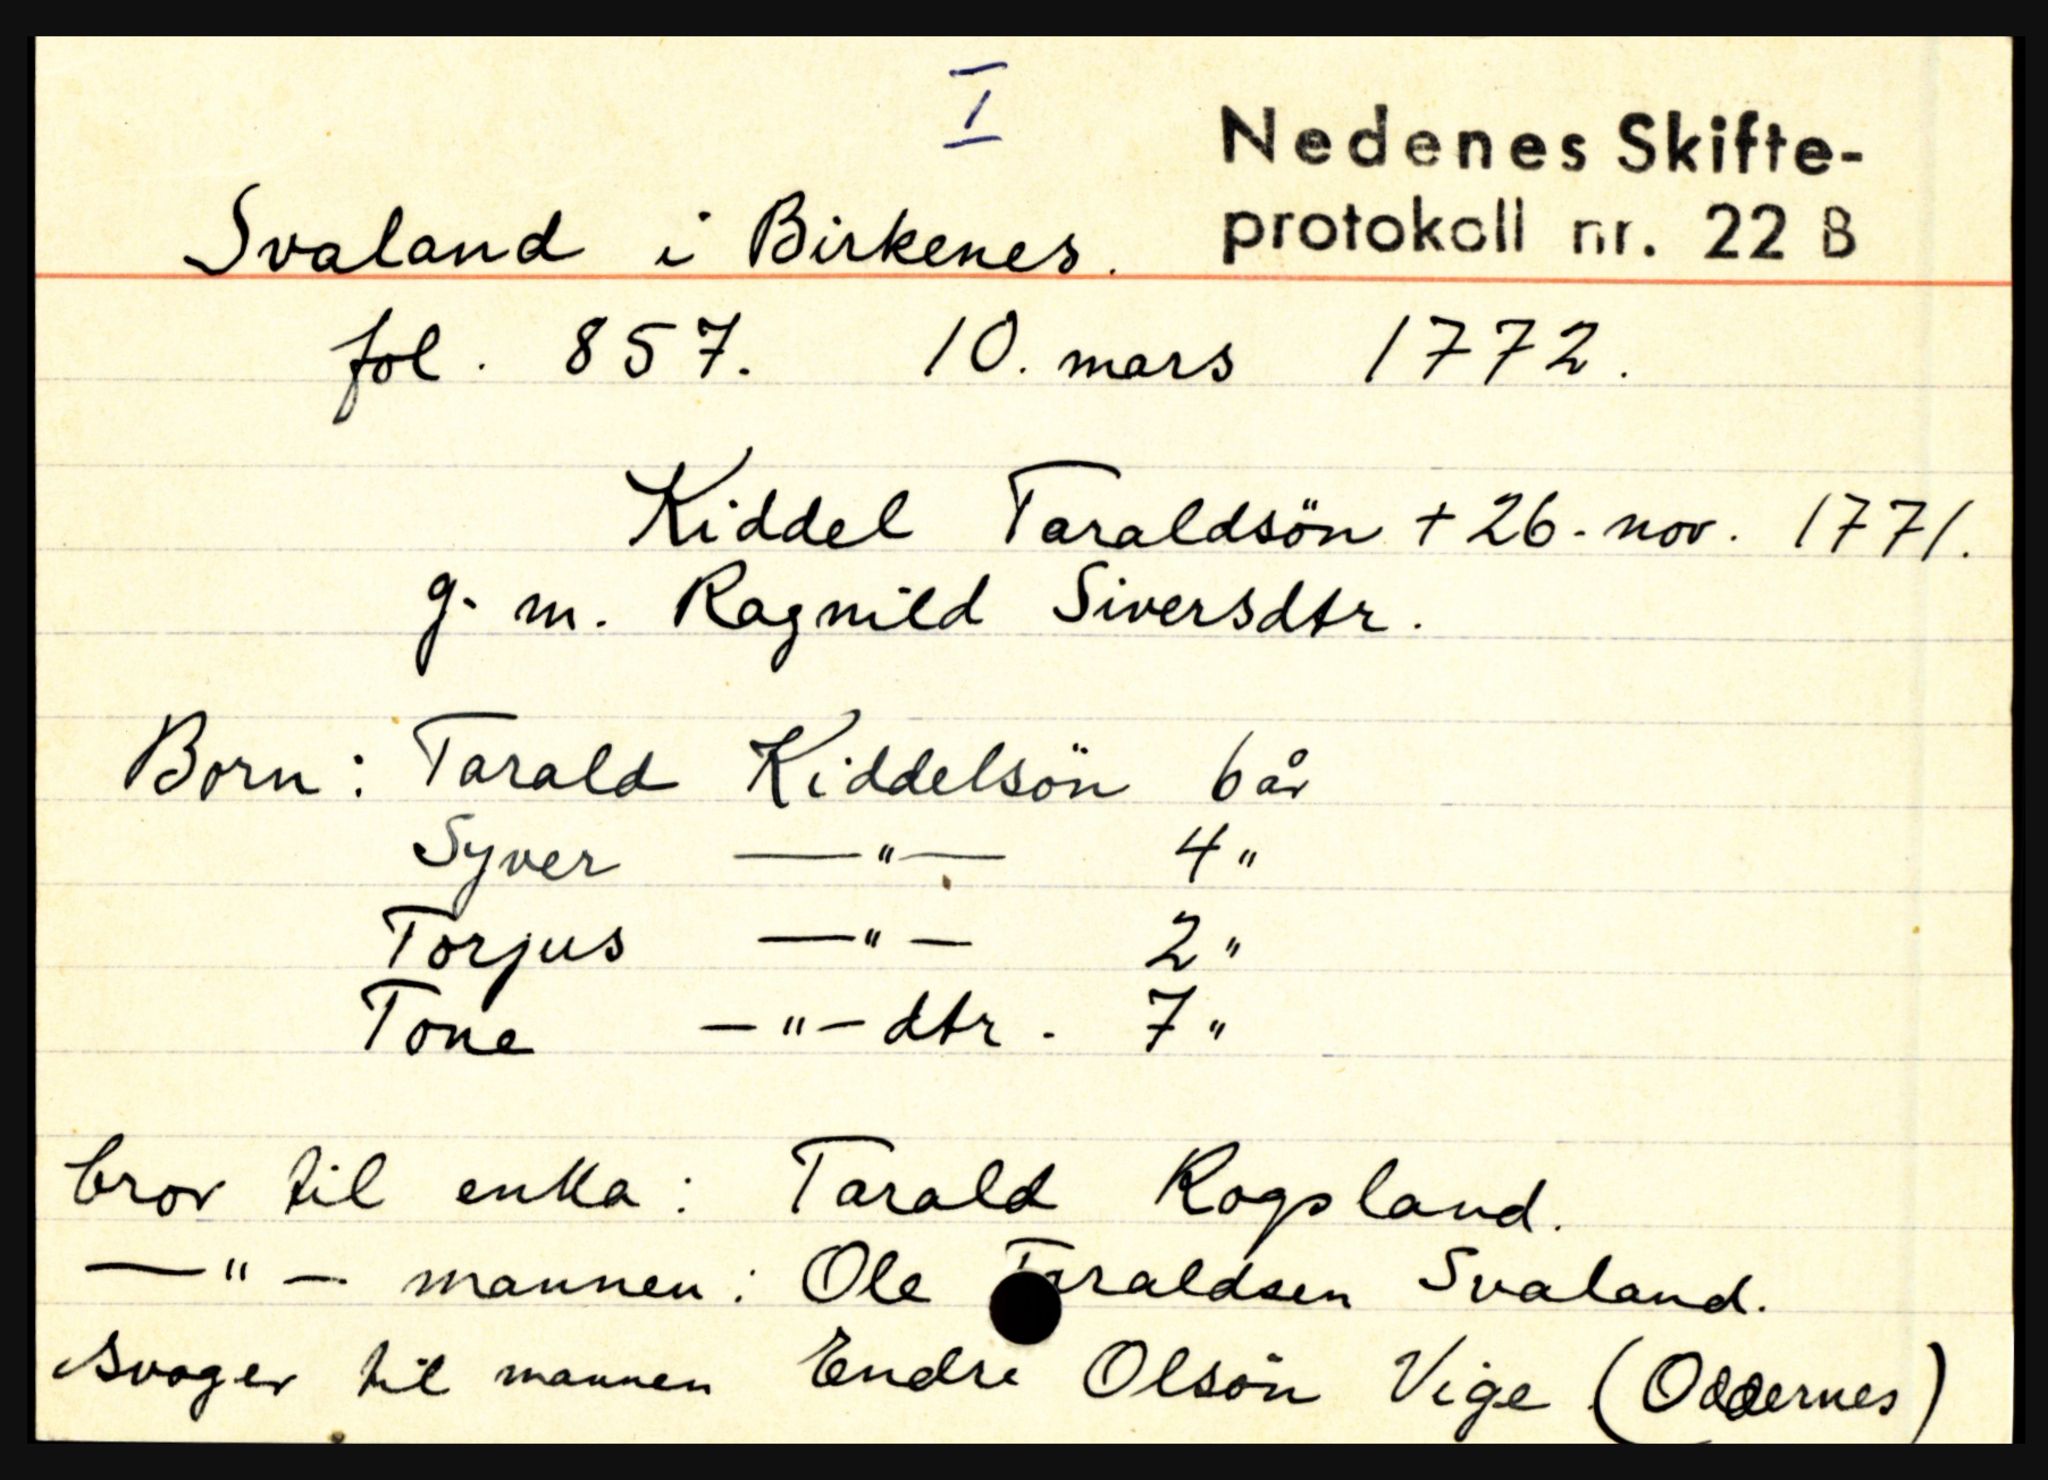 I
Nedenes Skifte-
protokoll nr. 22 B
Svaland i Birkenes.
fol. 857. 10. mars 1772.
Kiddel Taraldsön + 26. nov. 1771.
g. m. Ragnild Siversdtr.
Born: Tarald Kiddelsön 6 år
Syver —"— 4 "
Torjus —"— 2 "
Tone —"— dtr. 7 "
bror til enka: Tarald Rogsland.
—"— mannen: Ole Taraldsen Svaland.
svoger til mannen Endre Olsön Vige (Oddernes)